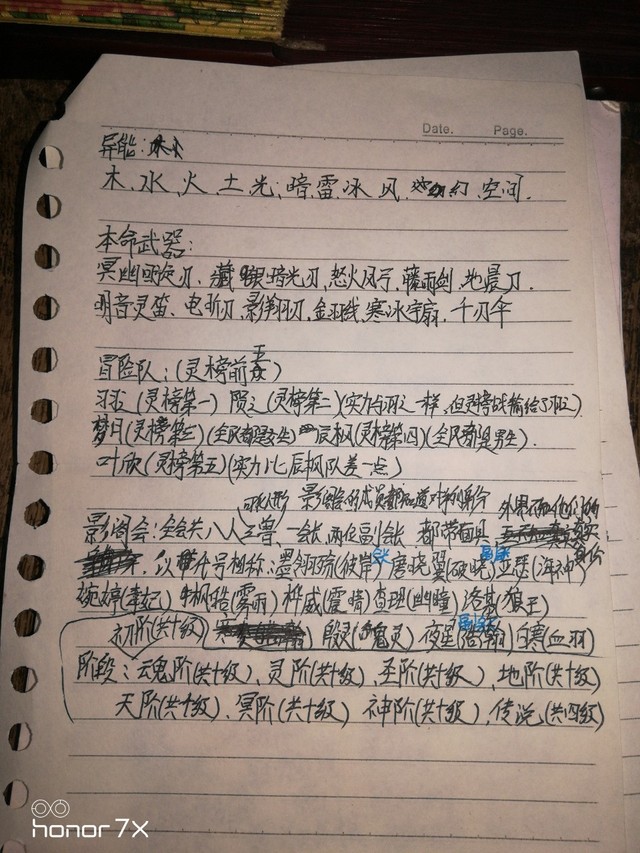 Date. Page.
异能:
木、水、火、土、光、暗、雷、冰、风、幻、空间.
本命武器:
冥幽回旋刀、暗光刃、怒火风弓、藤雨剑、地晨刀.
明音灵笛、电昕刀、影翔羽刃、金羽线、寒冰宇扇、千刃伞
冒险队:(灵榜前五)
羽(灵榜第一) 陨(灵榜第二)(实力与羽一样,但灵榜战输给了羽)
梦月(灵榜第三)(全民都是女生) 辰枫(灵榜第四)(全民都是男生).
叶欣(灵榜第五)(实力比辰枫队差一点)
可化人形 影阁会的成员都知道对方的身份 外界不知他们的
影阁会:全会共八人 兽、一会长、两位副会长、都带面具
身份
以代号相称:墨翎琉(彼岸)会长 唐晓翼(破晓)副会长 亚瑟(海神)
婉婷(幸妃) 特枫皓(雾雨) 桦威(震晴) 查理(幽瞳) 洛基(狼王)
初阶(共十级) 殷灵(魂灵) 夜星(浩瀚)副会长 白寒(血羽)
阶段:魂阶(共十级)、灵阶(共十级)、圣阶(共十级)、地阶(共十级)
天阶(共十级)、冥阶(共十级) 神阶(共十级)、传说(共四级)
honor 7X